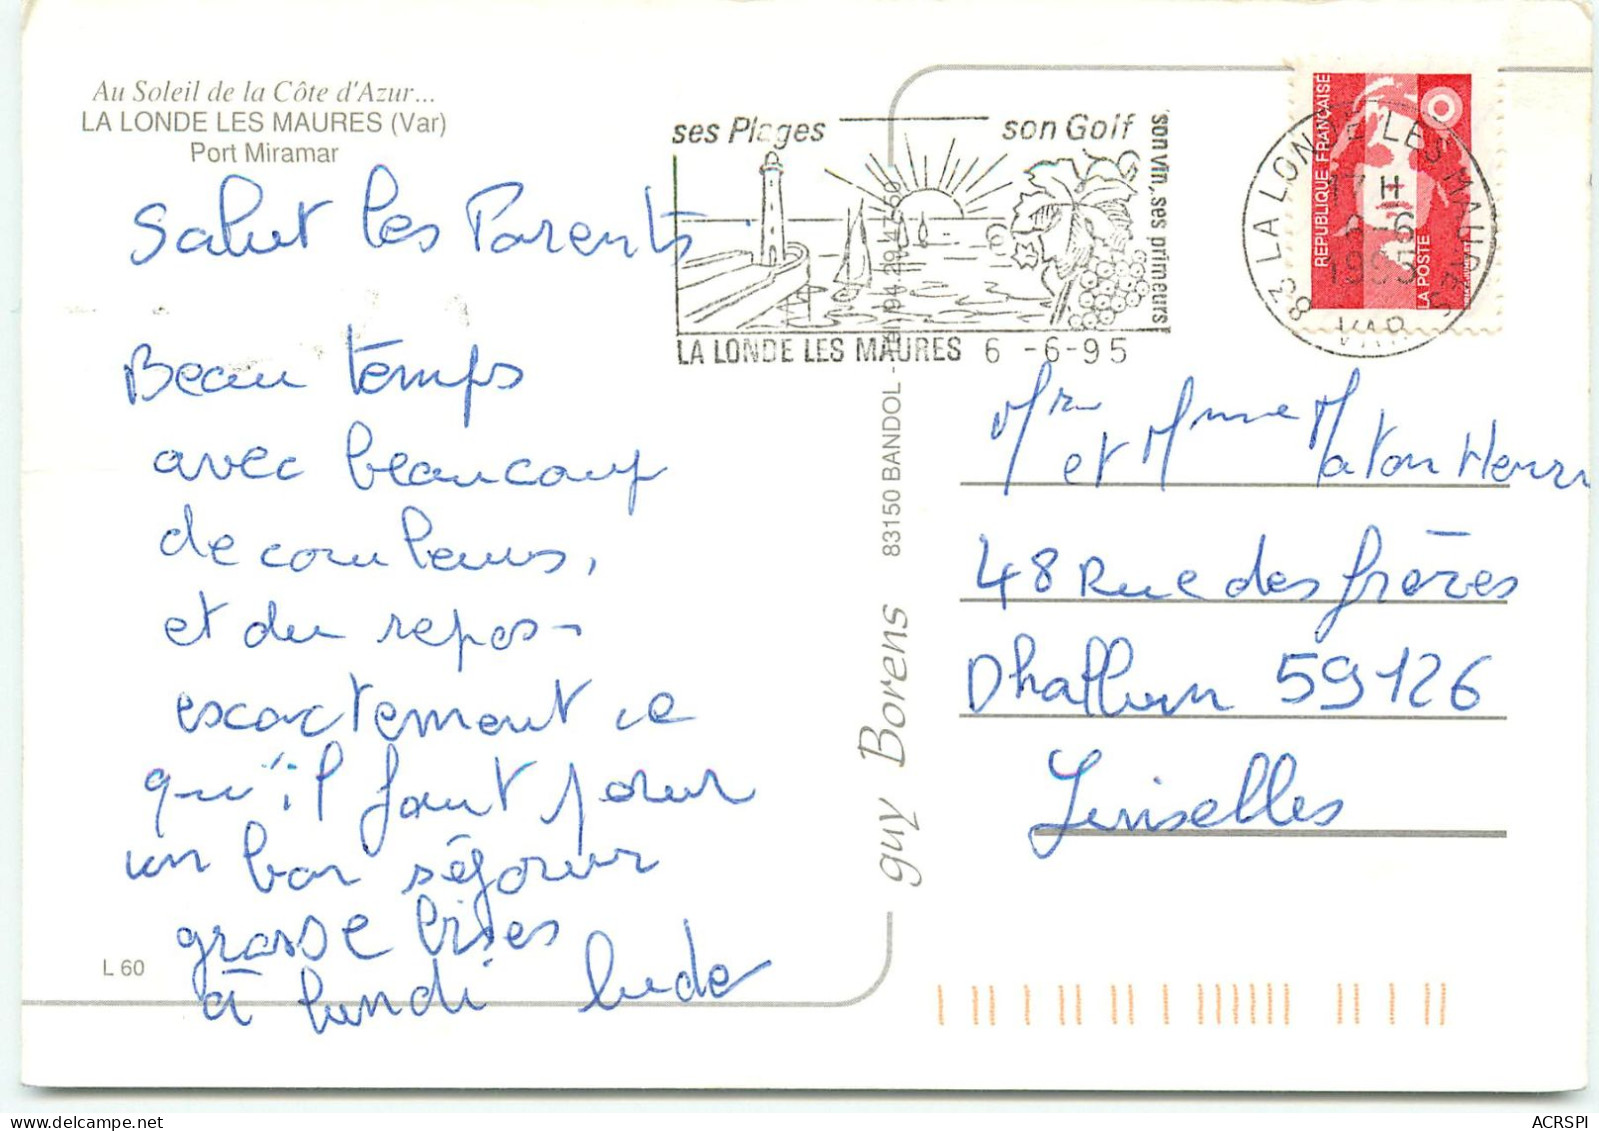 Au Soleil de la Côte d'Azur...
LA LONDE LES MAURES (Var)
Port Miramar
Salut les Parents
Beau temps
avec beaucoup
de couleurs,
et du repos
exactement ce
qu'il faut pour
un bon séjour
grosse bises
à lundi
L 60
ses Plages
son Golf
son vin, ses primeurs
LA LONDE LES MAURES 6 -6-95
guy Borens
83150 BANDOL -
RÉPUBLIQUE FRANÇAISE
LA POSTE
83 LA LONDE LES MAURES
17 H
6-6
1995
VAR
Mr et Mme Maton Henri
48 Rue des frères
Dhalluin 59126
Linselles
ACRSPI